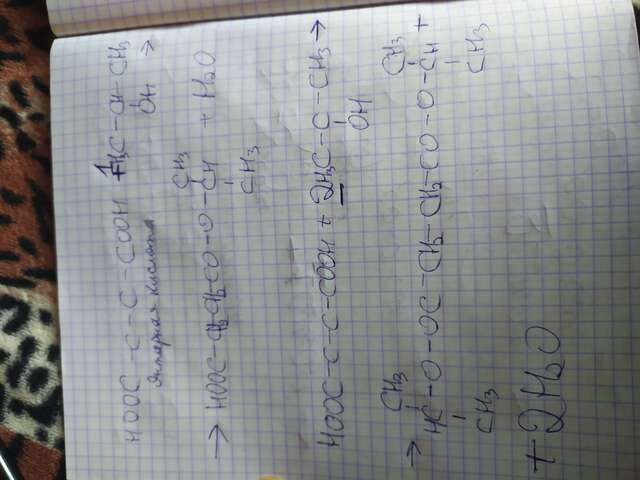 HOOC – C – C – COOH + H₃C – CH – CH₃ →
OH
Янтарная кислота
CH₃
→ HOOC – CH₂ CH₂ CO – O – CH + H₂O
CH₃
HOOC – C – C – COOH + 2H₃C – C – CH₃ →
OH
CH₃ CH₃
→ HC – O – OC – CH₂ – CH₂ – CO – O – CH +
CH₃ CH₃
+ 2H₂O